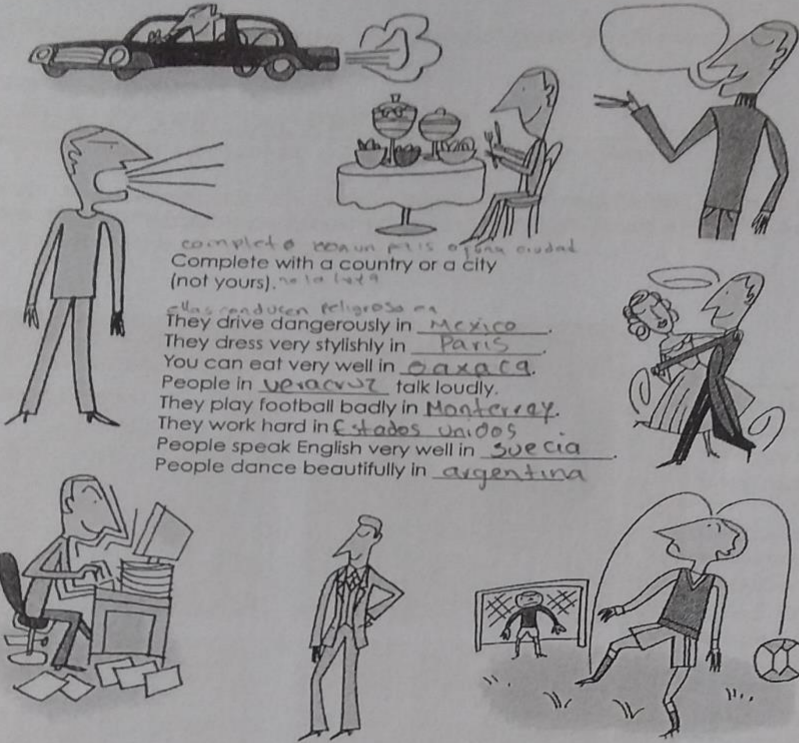 complete con un pais o una ciudad
Complete with a country or a city
(not yours). no la tuya
ellos conducen peligroso en
They drive dangerously in Mexico.
They dress very stylishly in Paris.
You can eat very well in Oaxaca.
People in veracruz talk loudly.
They play football badly in Monterrey.
They work hard in Estados unidos
People speak English very well in suecia.
People dance beautifully in argentina